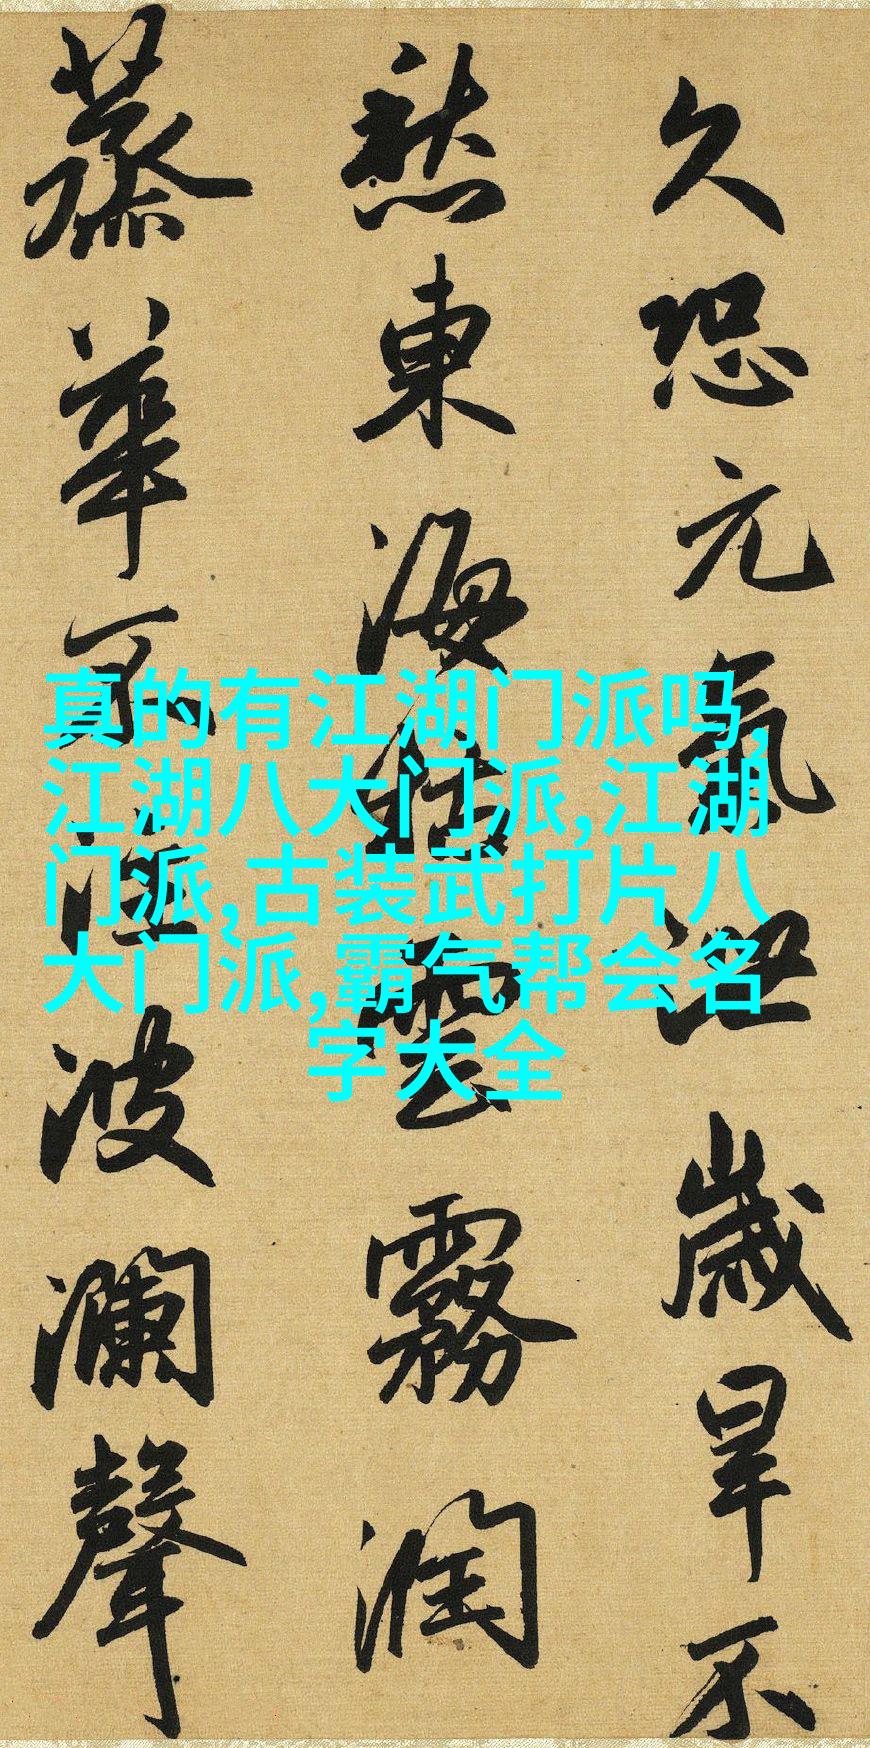 久恐元氣泄歲旱不
愁東海枯雲霧潤
蒸華不注波瀾聲
真的有江湖门派吗,
江湖八大门派,江湖
门派,古装武打片八
大门派,霸气帮会名
字大全